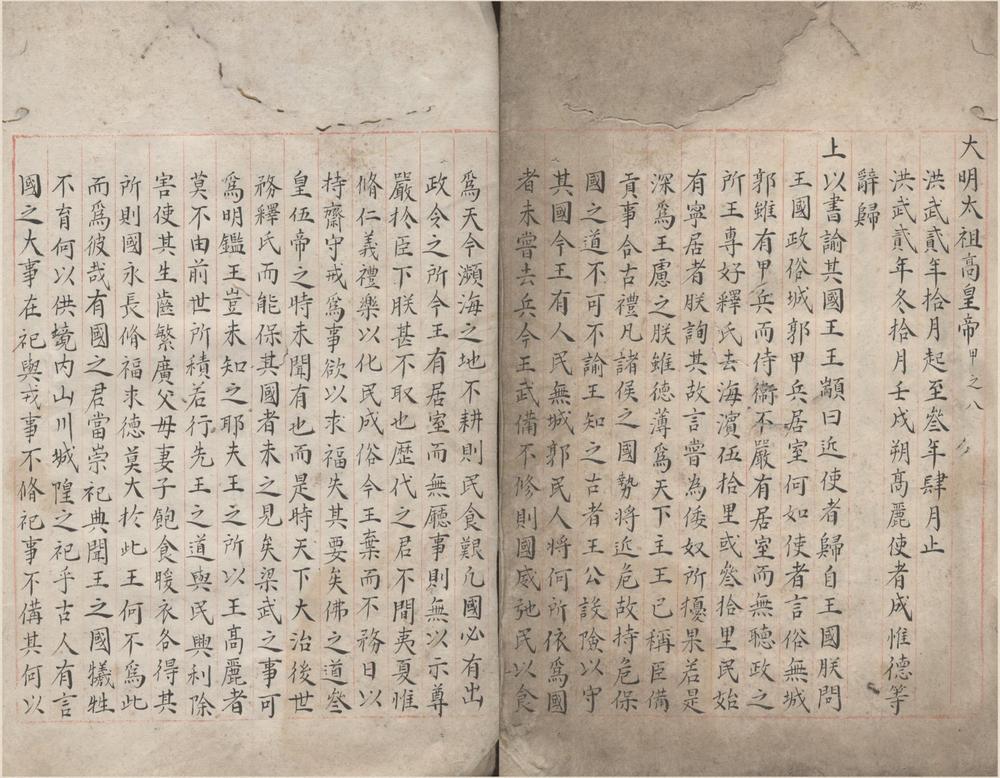 大明太祖高皇帝甲之八
洪武貳年拾月起至叄年肆月止
洪武貳年冬拾月壬戌朔高麗使者成惟德等
辭歸
上以書諭其國王王顓曰近使者歸自王國朕問
王國政俗城郭甲兵居室何如使者言俗無城
郭雖有甲兵而侍衛不嚴有居室而無聽政之
所王專好釋氏去海濱伍拾里或叄拾里民始
有寧居者朕詢其故言嘗為倭奴所擾果若是
深爲王慮之朕雖德薄爲天下主王已稱臣備
貢事合古禮凡諸侯之國勢將近危故持危保
國之道不可不諭王知之古者王公設險以守
其國今王有人民無城郭民人將何所依爲國
者未嘗去兵今王武備不修則國威弛民以食
爲天今瀕海之地不耕則民食艱凢國必有出
政令之所今王有居室而無廳事則無以示尊
嚴扵臣下朕甚不取也歷代之君不間夷夏惟
脩仁義禮樂以化民成俗今王棄而不務日以
持齋守戒爲事欲以求福失其要矣佛之道叄
皇伍帝之時未聞有也而是時天下大治後世
務釋氏而能保其國者未之見矣梁武之事可
爲明鑑王豈未知之耶夫王之所以王高麗者
莫不由前世所積若行先王之道與民興利除
害使其生齒繁廣父母妻子飽食暖衣各得其
所則國永長脩福求德莫大扵此王何不爲此
而爲彼哉有國之君當崇祀典聞王之國犧牲
不育何以供境内山川城隍之祀乎古人有言
國之大事在祀與戎事不脩祀事不備其何以